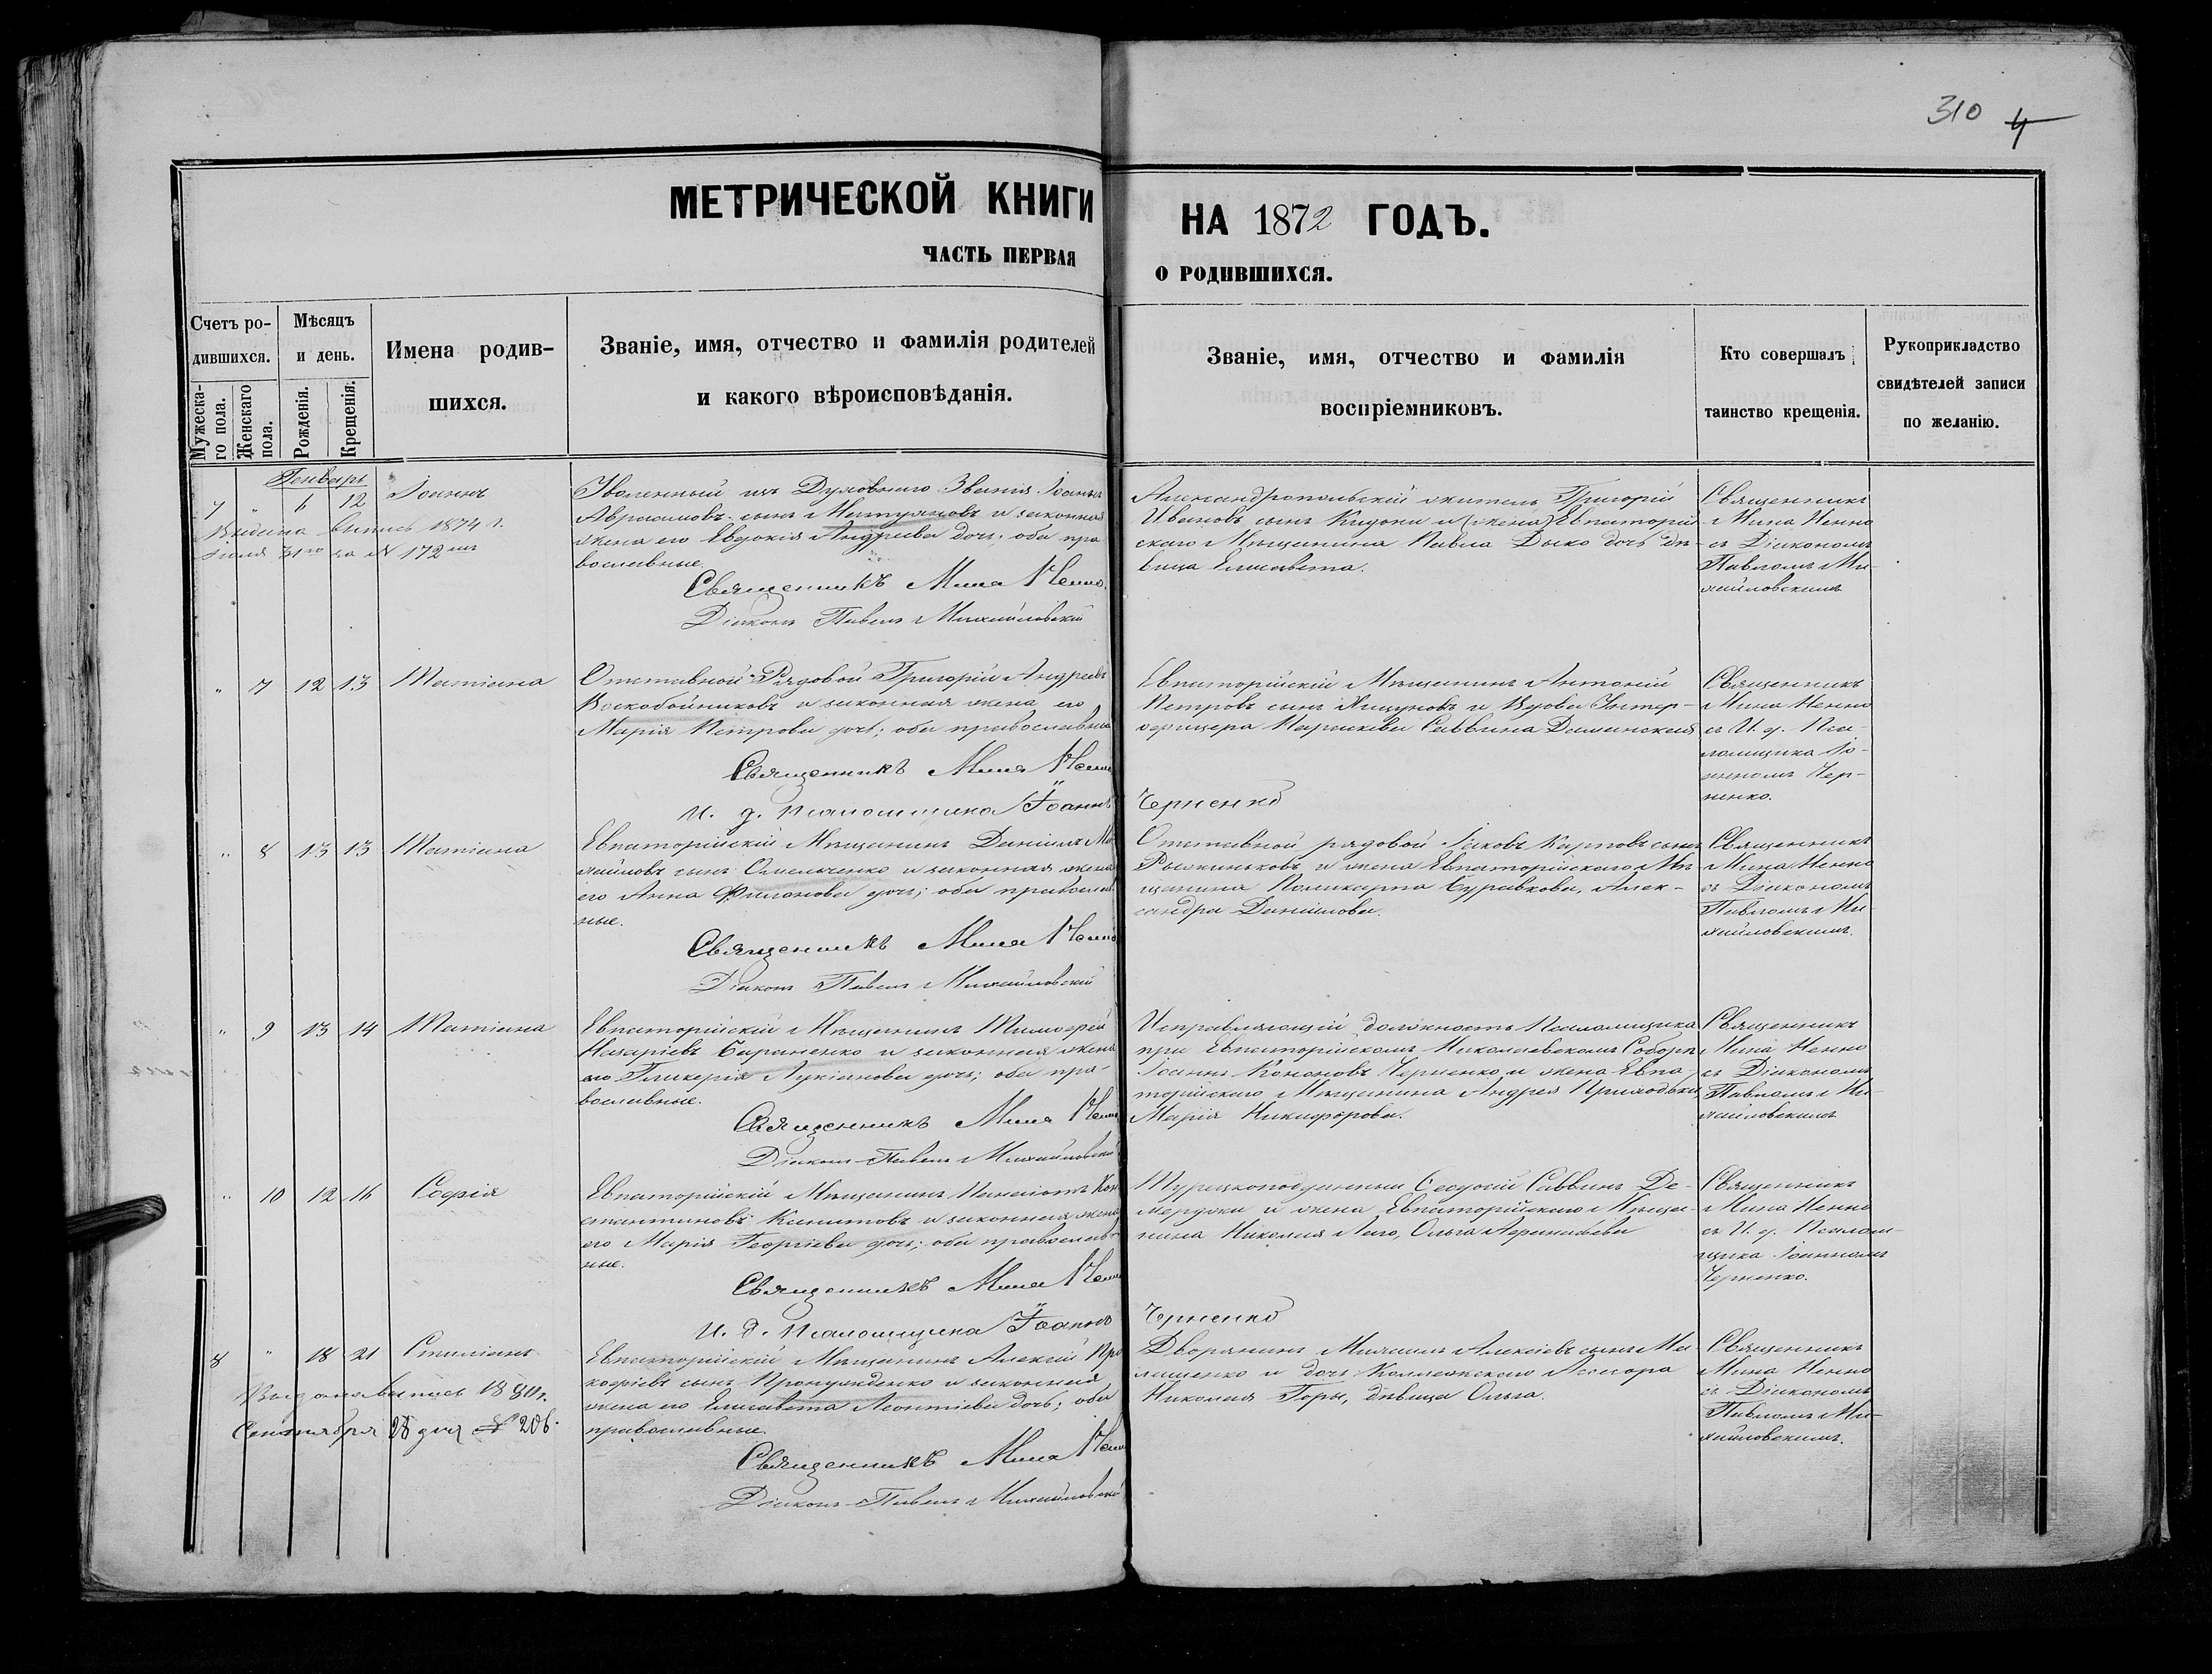 310 4
МЕТРИЧЕСКОЙ КНИГИ НА 1872 ГОДЪ.
ЧАСТЬ ПЕРВАЯ О РОДИВШИХСЯ.
Счетъ ро-
дившихся.
Мужеска-
го пола.
Женскаго
пола.
Мѣсяцъ
и день.
Рожденія.
Крещенія.
Имена родив-
шихся.
Званіе, имя, отчество и фамилія родителей
и какого вѣроисповѣданія.
Званіе, имя, отчество и фамилія
воспріемниковъ.
Кто совершалъ
таинство крещенія.
Рукоприкладство
свидѣтелей записи
по желанію.
Генварь
7 " 6 12 Іоаннъ
выпись 1874 г.
31го за № 172мъ
Уволенный изъ Духовнаго Званія Іоаннъ
сынъ и законная
жена его Евдокія Андреева дочь; оба пра-
вославные.
Священникъ Мина
Діаконъ Павелъ Михайловскій
Александропольскій житель Григорій
Ивановъ сынъ и (жена) Евпаторій-
скаго Мѣщанина Павла Дыко дочь дѣ-
вица Елисавета.
Священникъ
Мина Ненно
съ Діакономъ
Павломъ Ми-
хайловскимъ
" 7 12 13 Татіана
Отставной Рядовой Григорій Андреевъ
Воскобойниковъ и законная жена его
Марія Петрова дочь; оба православные
Священникъ Мина
И. д. Псаломщика Іоаннъ Черненко
Евпаторійскій Мѣщанинъ Антоній
Петровъ сынъ и Вдова Унтер-
офицера Параскева Саввина
Священникъ
Мина Ненно
съ И. д. Пса-
ломщика Іо-
анномъ Чер-
ненко.
" 8 13 13 Татіана
Евпаторійскій Мѣщанинъ Даніилъ Ми-
хайловъ сынъ Омельченко и законная жена
его Анна Филонова дочь; оба православ-
ные.
Священникъ Мина
Діаконъ Павелъ Михайловскій
Отставной рядовой Іаковъ Карповъ сынъ
и жена Евпаторійскаго Мѣ-
щанина Поликарпа Буравкова, Алек-
сандра Даніилова.
Священникъ
Мина Ненно
съ Діакономъ
Павломъ Ми-
хайловскимъ.
" 9 13 14 Татіана
Евпаторійскій Мѣщанинъ Тимофей
Назаріевъ Бараненко и законная жена
его Гликерія Лукіанова дочь; оба пра-
вославные.
Священникъ Мина
Діаконъ Павелъ Михайловскій
Исправляющій должность Псаломщика
при Евпаторійскомъ Николаевскомъ Соборѣ
Іоаннъ Кононовъ Черненко и жена Евпа-
торійскаго Мѣщанина Андрея Приходьки
Марія Никифорова.
Священникъ
Мина Ненно
съ Діакономъ
Павломъ Ми-
хайловскимъ
" 10 12 16 Софія
Евпаторійскій Мѣщанинъ Панаіотъ Кон-
стантиновъ и законная жена
его Марія Георгіева дочь; оба православ-
ные.
Священникъ Мина
И. д. Псаломщика Іоаннъ Черненко
Турецкоподданный Ѳеодосій Саввинъ Де-
мерджи и жена Евпаторійскаго Мѣща-
нина Николая Ольга Аѳанасьева
Священникъ
Мина Ненно
съ И. д. Псалом-
щика Іоанномъ
Черненко.
8 " 18 21 Стиліанъ
Выдана выпись 1880 г.
Сентября 28 дня № 206.
Евпаторійскій Мѣщанинъ Алексій Про-
кофіевъ сынъ и законная
жена его Елисавета Леонтіева дочь; оба
православные.
Священникъ Мина
Діаконъ Павелъ Михайловскій
Дворянинъ Алексіевъ сынъ Ма-
лашенко и дочь Коллежскаго Асессора
Николая Горы, дѣвица Ольга.
Священникъ
Мина Ненно
съ Діакономъ
Павломъ Ми-
хайловскимъ.